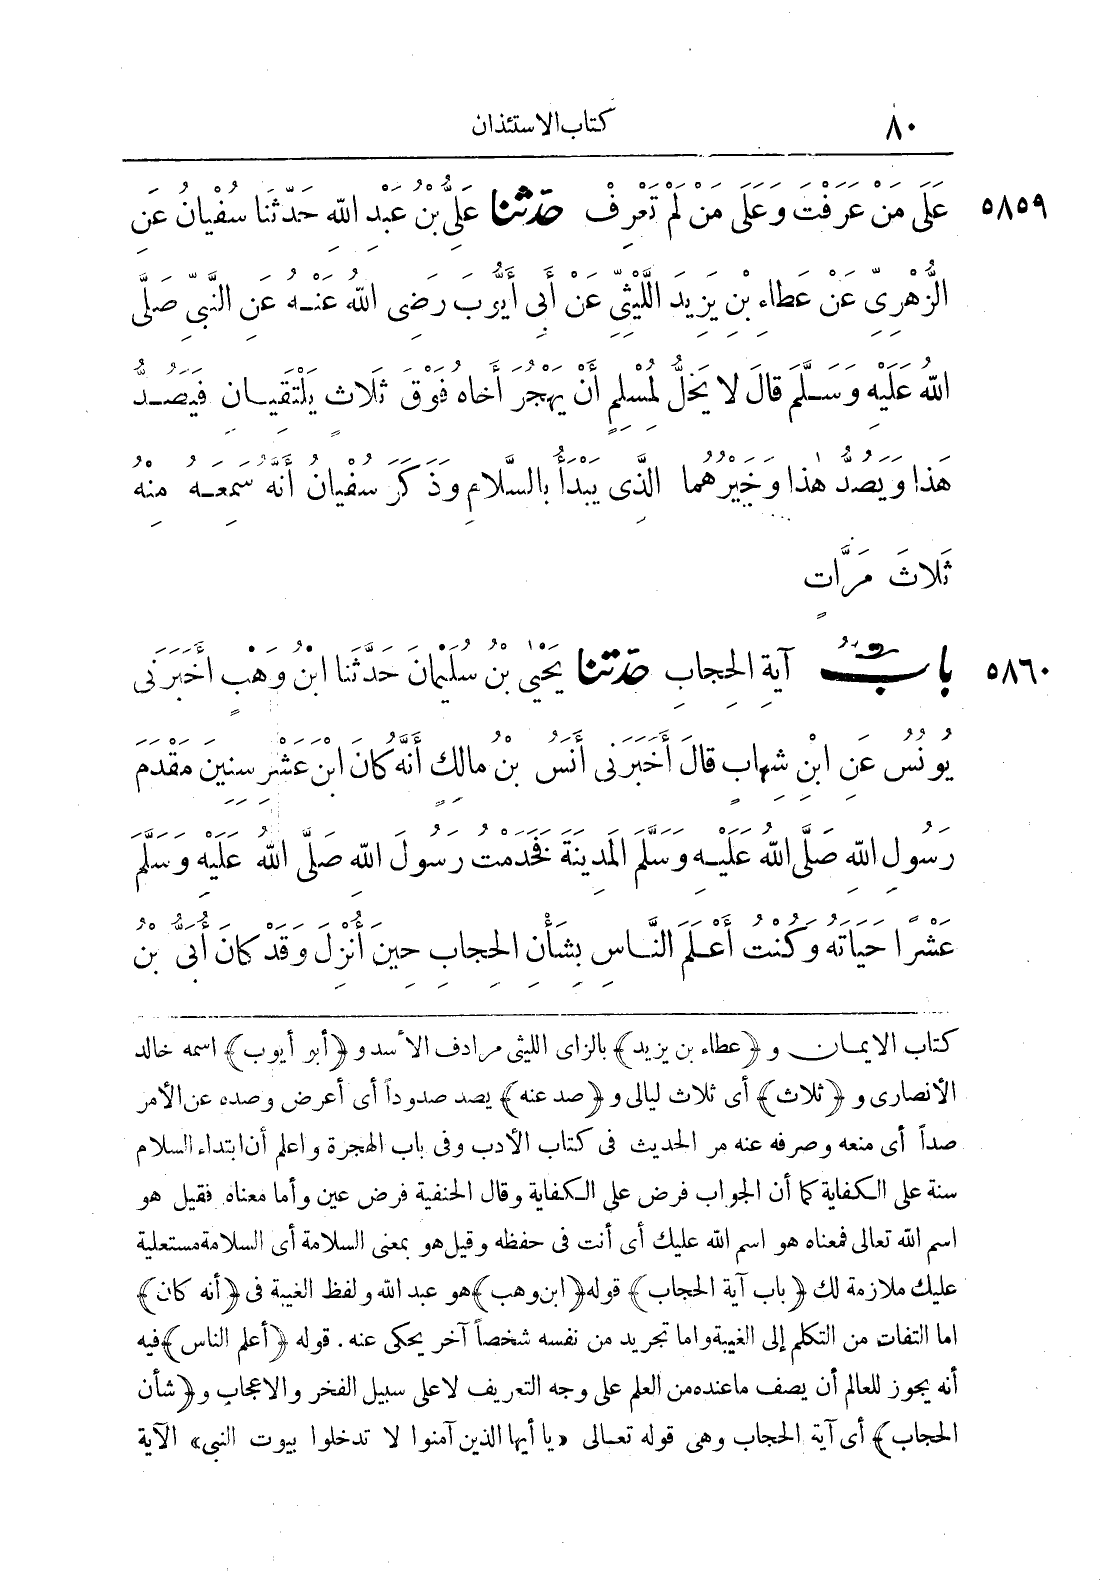 ٨٠ كتاب الاستئذان
٥٨٥٩ عَلَى مَنْ عَرَفْتَ وَعَلَى مَنْ لَمْ تَعْرِفْ حَدَّثَنَا عَلِيُّ بْنُ عَبْدِ اللهِ حَدَّثَنَا سُفْيَانُ عَنِ
الزُّهْرِيِّ عَنْ عَطَاءِ بْنِ يَزِيدَ اللَّيْثِيِّ عَنْ أَبِى أَيُّوبَ رَضِىَ اللهُ عَنْهُ عَنِ النَّبِيِّ صَلَّى
اللهُ عَلَيْهِ وَسَلَّمَ قَالَ لَا يَحِلُّ لِمُسْلِمٍ أَنْ يَهْجُرَ أَخَاهُ فَوْقَ ثَلَاثٍ يَلْتَقِيَانِ فَيَصُدُّ
هَذَا وَيَصُدُّ هٰذَا وَخَيْرُهُمَا الَّذِى يَبْدَأُ بِالسَّلَامِ وَذَكَرَ سُفْيَانُ أَنَّهُ سَمِعَهُ مِنْهُ
ثَلَاثَ مَرَّاتٍ
٥٨٦٠ بَابُ آيَةِ الحِجَابِ حَدَّثَنَا يَحْيٰى بْنُ سُلَيْمَانَ حَدَّثَنَا ابْنُ وَهْبٍ أَخْبَرَنِى
يُونُسُ عَنِ ابْنِ شِهَابٍ قَالَ أَخْبَرَنِى أَنَسُ بْنُ مَالِكٍ أَنَّهُ كَانَ ابْنَ عَشْرِ سِنِينَ مَقْدَمَ
رَسُولِ اللهِ صَلَّى اللهُ عَلَيْهِ وَسَلَّمَ المَدِينَةَ فَخَدَمْتُ رَسُولَ اللهِ صَلَّى اللهُ عَلَيْهِ وَسَلَّمَ
عَشْرًا حَيَاتَهُ وَكُنْتُ أَعْلَمَ النَّاسِ بِشَأْنِ الحِجَابِ حِينَ أُنْزِلَ وَقَدْ كَانَ أُبَيُّ بْنُ
كتاب الايمان و ﴿عطاء بن يزيد﴾ بالزاى الليثى مرادف الأسد و ﴿أبو أيوب﴾ اسمه خالد
الأنصارى و ﴿ثلاث﴾ أى ثلاث ليالى و ﴿صد عنه﴾ يصد صدوداً أى أعرض وصده عن الأمر
صداً أى منعه وصرفه عنه مر الحديث فى كتاب الأدب وفى باب الهجرة واعلم أن ابتداء السلام
سنة على الكفاية كما أن الجواب فرض على الكفاية وقال الحنفية فرض عين وأما معناه فقيل هو
اسم الله تعالى فمعناه هو اسم الله عليك أى أنت فى حفظه وقيل هو بمعنى السلامة أى السلامة مستعلية
عليك ملازمة لك ﴿باب آية الحجاب﴾ قوله ﴿ابن وهب﴾ هو عبد الله ولفظ الغيبة فى ﴿أنه كان﴾
اما التفات من التكلم إلى الغيبة واما تجريد من نفسه شخصاً آخر يحكى عنه. قوله ﴿أعلم الناس﴾ فيه
أنه يجوز للعالم أن يصف ما عنده من العلم على وجه التعريف لا على سبيل الفخر والاعجاب و ﴿شأن
الحجاب﴾ أى آية الحجاب وهى قوله تعالى «يا أيها الذين آمنوا لا تدخلوا بيوت النبى» الآية